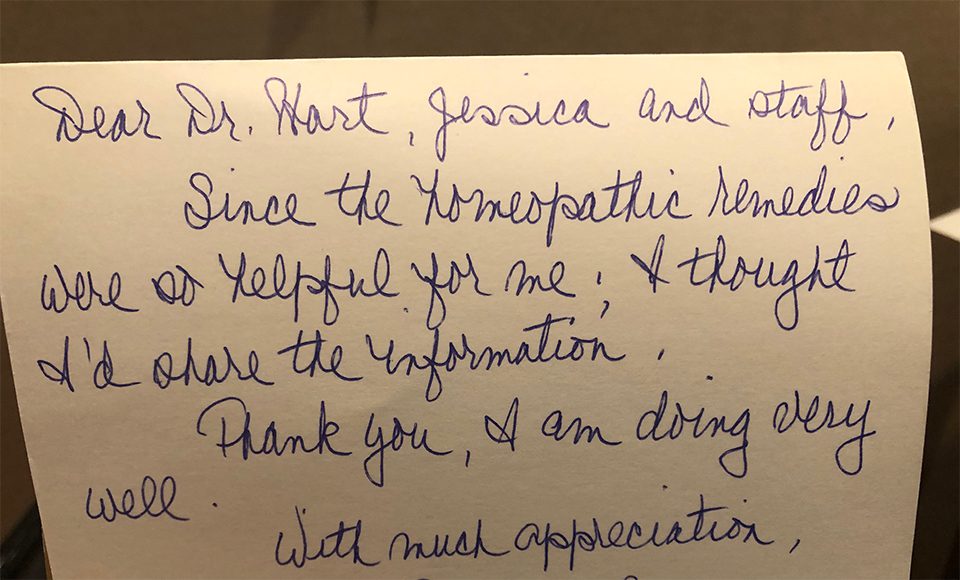 Dear Dr. Hart, Jessica and staff,
Since the homeopathic remedies
were so helpful for me; I thought
I'd share the information.
Thank you, I am doing very
well.
With much appreciation,